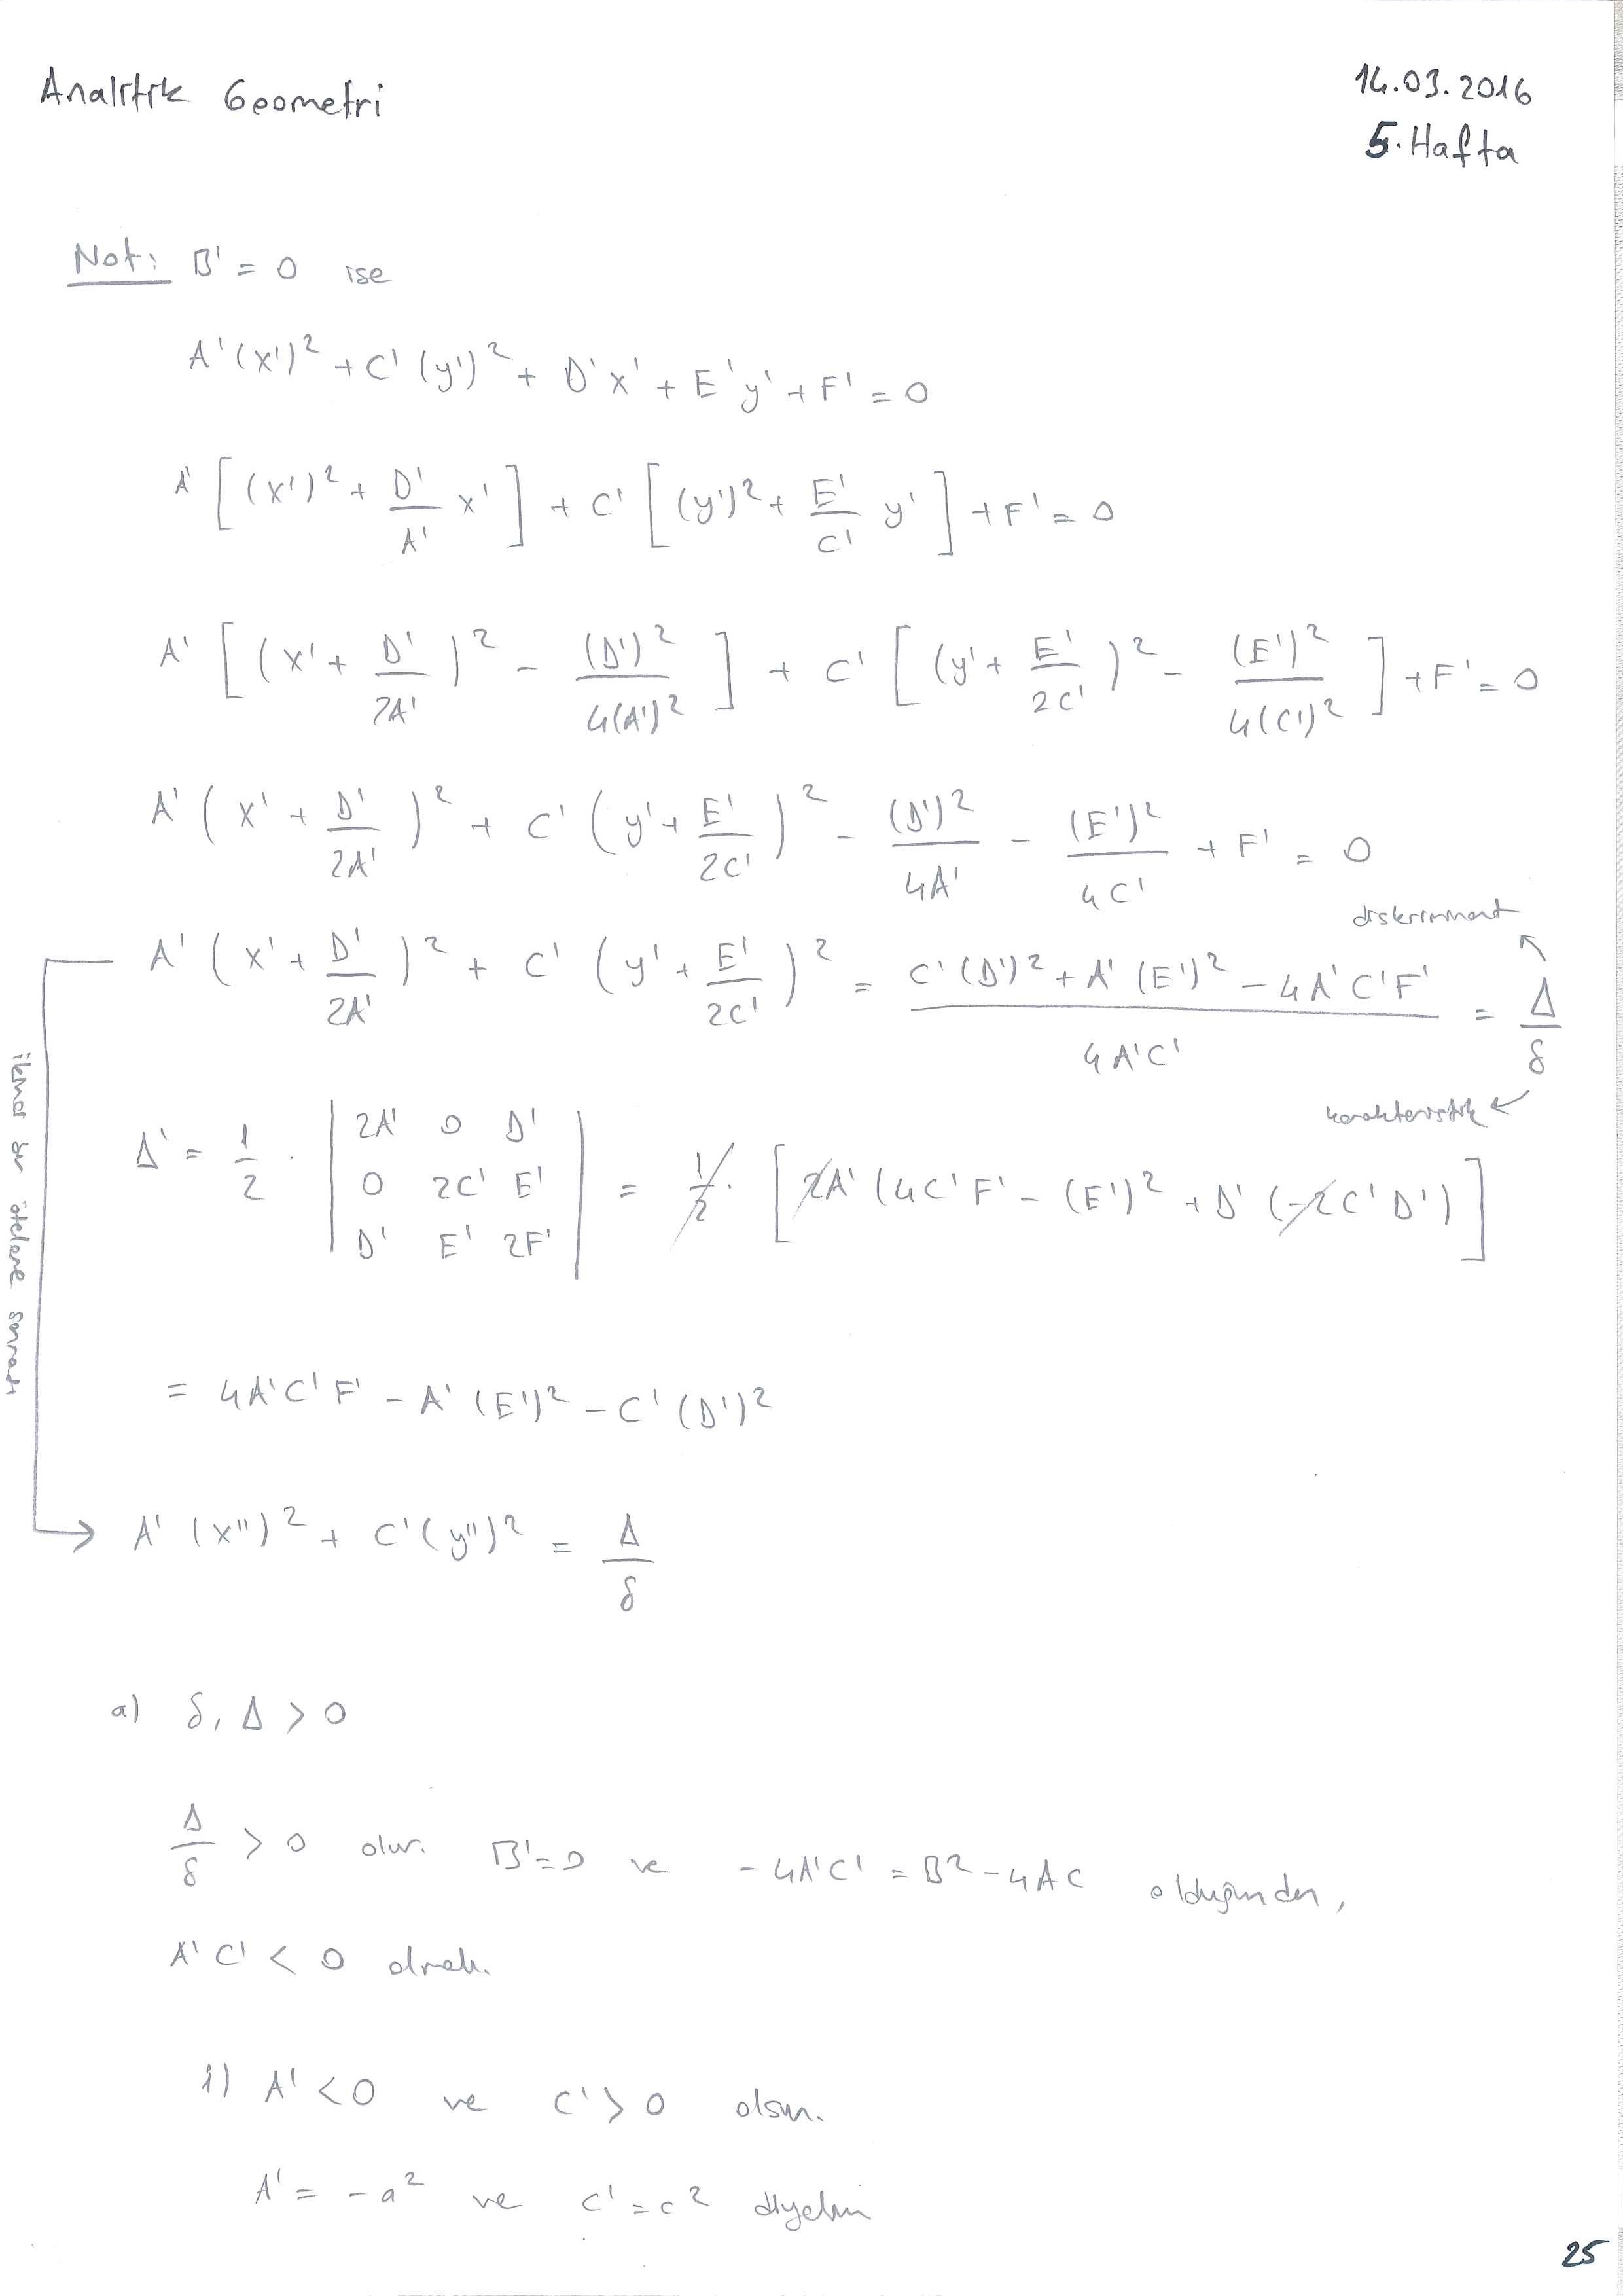 Analitik Geometri
14.03.2016
5. Hafta
Not: B' = 0 ise
A'(x')² + C'(y')² + D'x' + E'y' + F' = 0
A' [ (x')² + D'/A' x' ] + C' [ (y')² + E'/C' y' ] + F' = 0
A' [ (x' + D'/2A' )² - (D')²/4(A')² ] + C' [ (y' + E'/2C' )² - (E')²/4(C')² ] + F' = 0
A' ( x' + D'/2A' )² + C' ( y' + E'/2C' )² - (D')²/4A' - (E')²/4C' + F' = 0
diskriminant
A' ( x' + D'/2A' )² + C' ( y' + E'/2C' )² = C'(D')² + A'(E')² - 4A'C'F' / 4A'C' = Δ/δ
karakteristik
ikinci bir öteleme sonrası
Δ' = 1/2 . | 2A' 0 D' |
| 0 2C' E' |
| D' E' 2F' | = 1/2 . [ 2A' (4C'F' - (E')² + D' (-2C'D') ]
= 4A'C'F' - A'(E')² - C'(D')²
A' (x'')² + C'(y'')² = Δ/δ
a) δ, Δ > 0
Δ/δ > 0 olur. B' = 0 ve -4A'C' = B² - 4AC olduğundan,
A'C' < 0 olmalı.
i) A' < 0 ve C' > 0 olsun.
A' = -a² ve C' = c² diyelim
25